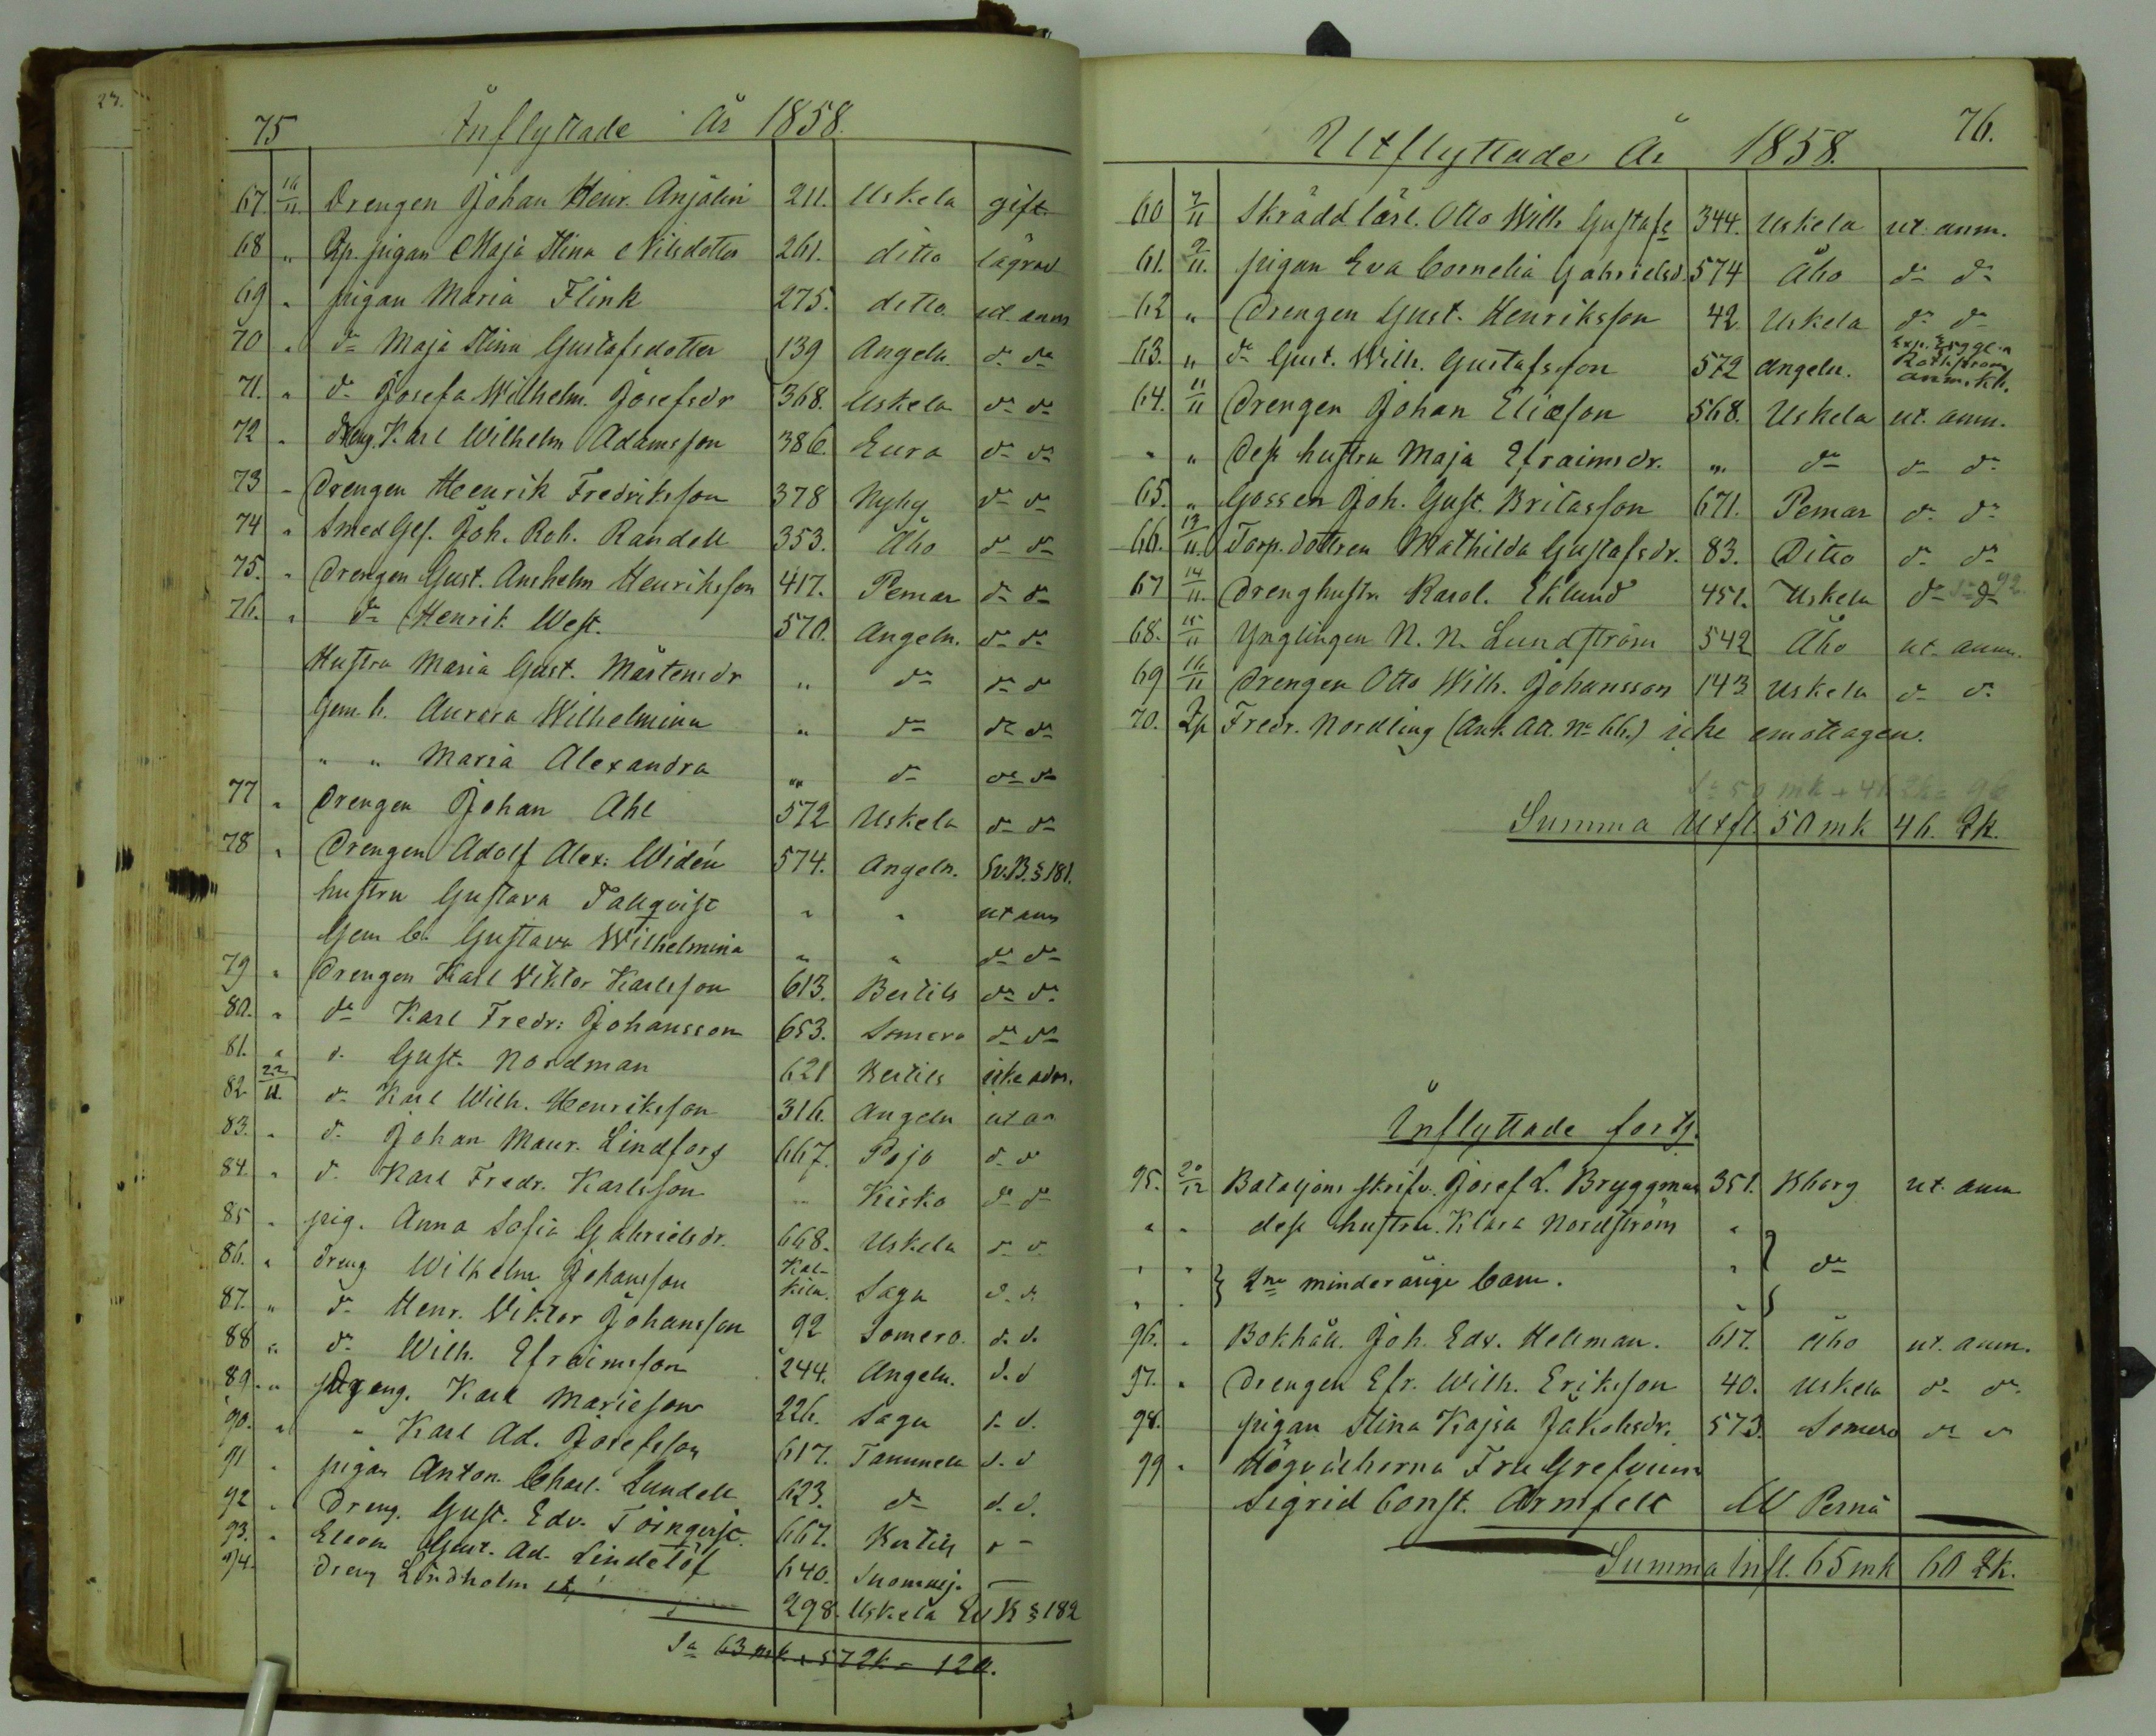 27.
75 Inflyttade År 1858.
67. 16/11. Drengen Johan Henr. Anjalin 211. Uskela gift.
68 " Rp. pigan Maja Stina Nilsdotter 261. ditto lägrad
69 " pigan Maria Flink 275. ditto ut. anm
70 " do Maja Stina Gustafsdotter 139 Angeln. do do
71. " do Josefa Wilhelm. Josefsdr 368. Uskela do do
72 " dreng. Karl Wilhelm Adamsson 386. Eura do do
73 " Drengen Henrik Fredriksson 378 Nyby do do
74 " Smed Ges. Joh. Rob. Randell 353. Åbo do do
75. " Drengen Gust. Anshelm Henriksson 417. Pemar do do
76. " do Henrik West. 570. Angeln. do do
Hustru Maria Gust. Mårtensdr " do do do
Gem. b. Aurora Wilhelmina " do do do
" " Maria Alexandra " do do do
77 " Drengen Johan Ahl 572 Uskela do do
78 " Drengen Adolf Alex: Widén 574. Angeln. Sv.B. § 181.
hustru Gustava Tallqvist " " ut anm
Gem b. Gustava Wilhelmina " " do do
79 " Drengen Karl Viktor Karlsson 613. Bertils do do
80. " do Karl Fredr: Johansson 653. Somero do do
81. " d. Gust. Nordman 621 Bertils icke adm.
82 22/11. d. Karl Wilh. Henriksson 316. Angeln ut an
83. " d. Johan Maur. Lindfors 667. Pojo d. d
84. " d. Karl Fredr. Karlsson " Kisko do do
85 " pig. Anna Sofia Gabrielsdr. 668. Uskela d. d.
86. " dreng Wilhelm Johansson Kal-kila. Sagu d. d.
87. " do Henr. Viktor Johansson 92 Somero. d. d.
88 " do Wilh. Efraimsson 244. Angeln. d. d
89. " Dreng. Karl Mariesson 226. Sagu d. d.
90. " " Karl Ad. Josefsson 617. Tammela d. d
91 " pigan Anton. Charl. Lundell 623. do d. d.
92 " Dreng. Gust. Edv. Törnqvist 667. Bertils d -
93. " Eleven Gust. Ad. Lindelöf 640. Suomusj. —
94. Dreng Lindholm 298. Uskela Sv B § 182
Sa 63 mk + 57 2k = 120.
Utflyttade År 1858. 76.
60 7/11 Skrädd. lärl. Otto Wilh Gustafs 344. Uskela ut. anm.
61. 9/11. pigan Eva Cornelia Gabrielsd. 574 Åbo do do
62 " Drengen Gust. Henriksson 42 Uskela do do
63. " do Gust. Wilh. Gustafsson 572 Angeln. anm. kb.
64. 11/11 Drengen Johan Eliasson 568. Uskela ut. anm.
" " Dess hustru Maja Efraimsdr. " do do do
65. " Gossen Joh. Gust. Britasson 671. Pemar d. do
66. 13/11. Torp. dottren Mathilda Gustafsdr. 83. Ditto d. do
67 14/11. Drenghustr. Karol. Eklund 451. Uskela do do
68. 15/11 Ynglingen N. N. Lundström 542 Åbo ut. anm.
69 16/11 Drengen Otto Wilh. Johansson 143 Uskela d. d.
70. Fredr. Nordling (Ank. Att. No 66.) icke emottagen.
Sa 50 mk + 46 2k = 96
Summa Utfl. 50 mk 46. 2k.
Inflyttade forts.
95. 20/12 Bataljons skrifv. Josef L. Bryggman 351. Kborg ut. anm
" " dess hustru Klara Nordström "
" " } 2ne minderårige barn. " } do
96. " Bokhåll. Joh. Edv. Hellman. 617. Åbo ut. anm.
97. " Drengen Efr. Wilh. Eriksson 40. Uskela do do
98. pigan Stina Kajsa Jakobsdr. 573. Somero do do
99 " Högvälborna Fru Grefvinn.
Sigrid Const. Armfelt Pernå —
Summa Infl. 65 mk 60 2k.